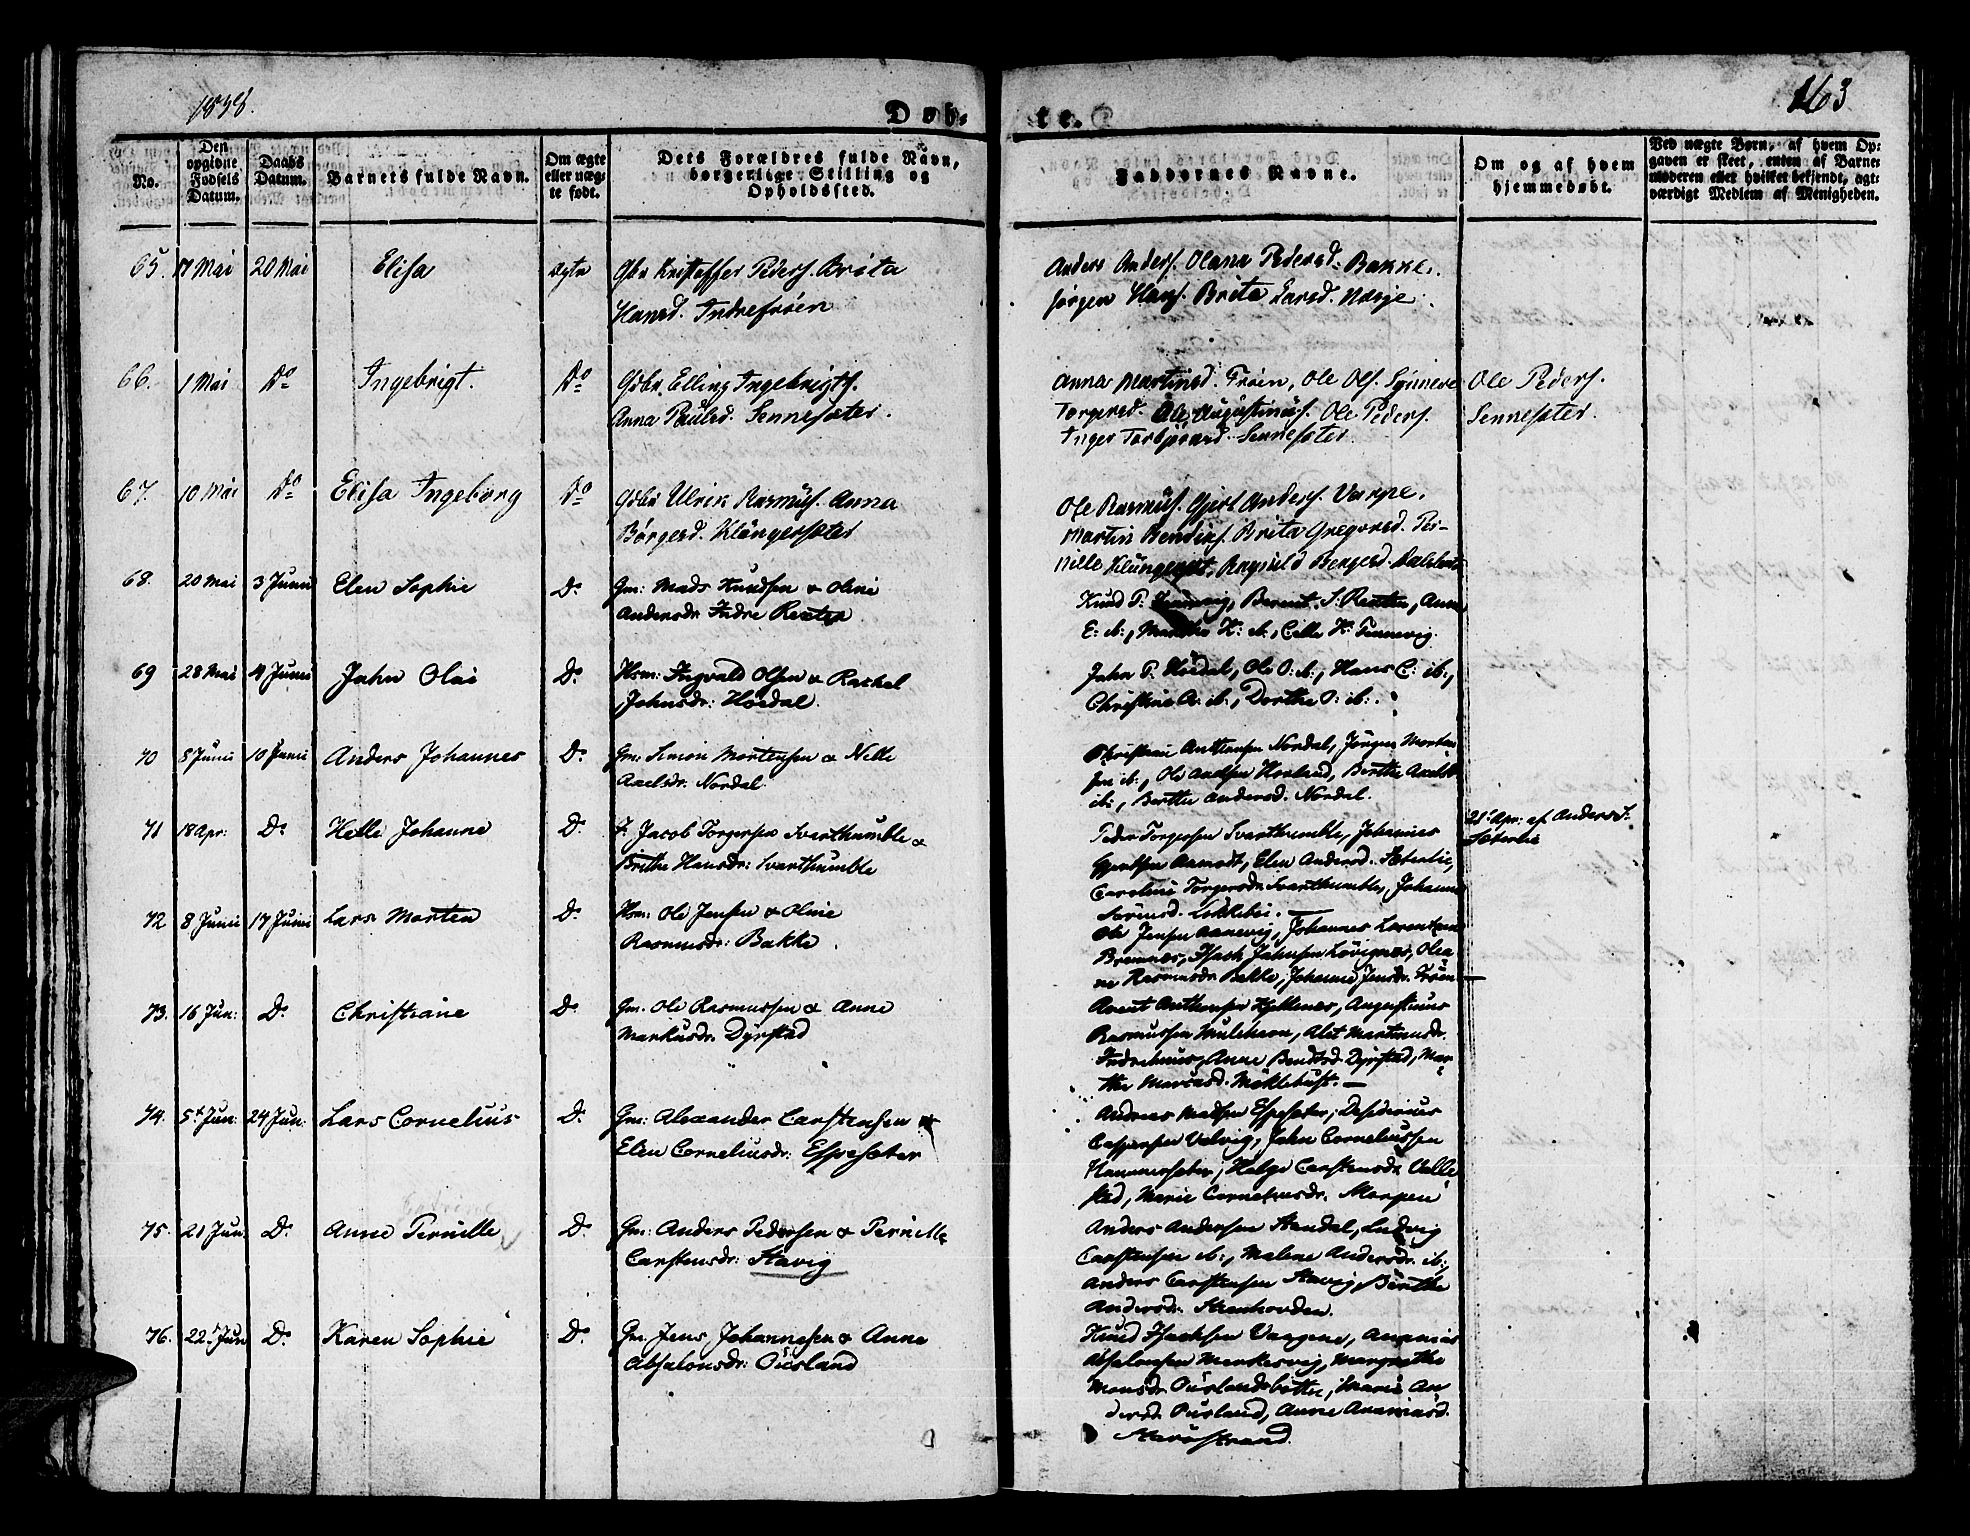 1838.
Døb-
te.
163
No.
Den opgivne Fødsels Datum.
Daabs Datum.
Barnets fulde Navn.
Om ægte eller uægte født.
Dets Forældres fulde Navn, borgerlige Stilling og Opholdssted.
Faddernes Navne.
Om og af hvem hjemmedøbt.
Ved uægte Børn, af hvem Opgaven er skeet, enten af Barnemoderen eller hvilket bekjendt, agtværdigt Medlem af Menigheden.
65. 17 Mai 20 Mai Elisa ægte Gbr Kristoffer Peders. Brita
Hansd. Indrefrøien
Anders Anders. Olana Pedersd. Bakke.
Jørgen Hans. Brita Larsd. Nesje.
66. 1 Mai Do Ingebrigt. Do Gdbr. Elling Ingebrigts.
Anna Paulsd. Sennesæter.
Anna Martinsd. Frøien, Ole Ols. Synneve
Torgersd. Ole Augustinus. Ole Peders.
Inger Torbjørnsd. Sennesæter.
Ole Peders.
Sennesæter.
67. 10 Mai Do Elisa Ingeborg Do Gdbr Ulrik Rasmus. Anna
Børgesd. Klångersæter
Ole Rasmus. Gjert Anders. Varpe.
Martin Bendiks. Brita Gregorsd. Per-
nille
68. 20 Mai 3 Junii Elen Sophie D. Gm: Mads Knudsen & Oline
Andersdr: Indre Reksten
Knud P. Tennevig, Berent S. Reksten, Anne
E: ib:, Marthe K: ib:, Celle K: Tennevig.
69 28 Mai 4 Junii John Olai D. Hsm: Ingvald Olsen & Rachel
Johnsdr: Høidal.
John P. Høidal, Ole O: ib:, Hans C: ib:,
Christine A: ib:, Dorthe O: ib:.
70 5 Junii 10 Junii Anders Johannes D. Gm: Simon Mortensen & Nille
Axelsdr: Nordal.
Christian Anthonsen Nordal, Jørgen Morten-
sen ib:, Ole Andsen Hovland, Berthe Axelsdr
ib:, Berthe Andersd. Nordal.
71 18 Apr: D. Helle Johanne D. F. Jacob Torgersen Svarthumble &
Brithe Hansdr: Svarthumble
Peder Torgersen Svarthumble, Johannes
Gjertsen Aamodt, Elen Andersd. Sæterlie,
Caroline Torgersdr. Svarthumble, Johanne
Sørensd. Løkkebøe.
21 Apr: af Anders S.
Sæterlie
72 8 Junii 17 Junii Lars Morten D. Hsm: Ole Jensen & Oline
Rasmusdr: Bakke.
Ole Jensen Aanevig, Johannes Larentsen
Bremnes, Isach Johnsen Løvignes, Olea-
ne Rasmusdr Bakke, Johanne Jensdr. Frøien
73. 16 Jun: D. Christiane D. Gm: Ole Rasmussen & Anne
Markusdr: Dyrstad
Arent Anthonsen Hellenes, Augustinus
Rasmussen Mulehavn, Alet Martinusdr.
Indrehuus, Anne Bendtsd. Dyrstad, Mar-
the Marcusd. Møklebust.
74. 5t Jun: 24 Jun: Lars Cornelius D. Gm: Alexander Carstensen &
Elen Corneliusdr: Espesæter
Andreas Madsen Espesæter, Desiderius
Caspersen Velvig, John Corneliussen
Hammersæter, Helge Carstensdr. Valle-
stad, Marie Corneliusdr. Norpen
Catrine
75. 21 Jun D. Anne Pernille D. Gm: Anders Pedersen & Pernille
Carstensdr: Stavig
Anders Andersen Standal, Ludvig
Carstensen ib:, Malene Andersdr. ib:,
Anders Carstensen Stavig, Berthe
Andersdr. Steenhovden.
76. 22. Jun D. Karen Sophie D. Gm: Jens Johannesen & Anne
Absalonsdr: Ousland
Knud Isachsen Vaagene, Ananias
Absalonsen Myrkesvig, Margrethe
Monsdr. Ouslandsbotten, Marie An-
dersd. Ousland, Anne Ananiasd.